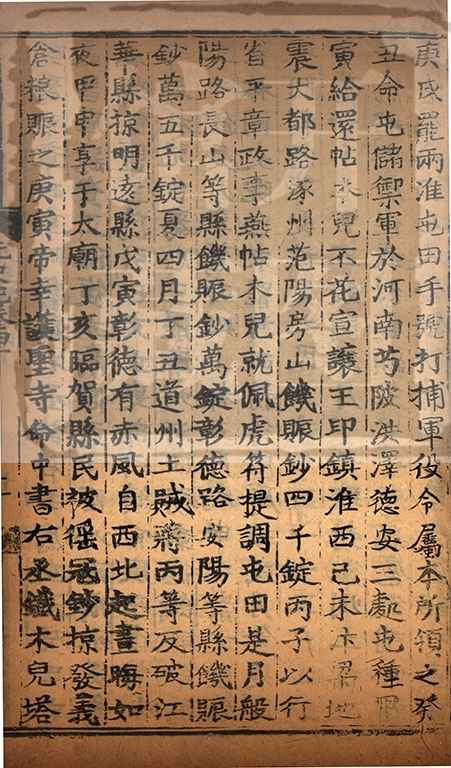 庚戌罷兩淮屯田手號打捕軍役令屬本所領之癸
丑命屯儲禦軍於河南芍陂洪澤德安三處屯種
寅給還帖木兒不花宣讓王印鎮淮西己未木憐地
震大都路涿州范陽房山饑賑鈔四千錠丙子以行
省平章政事燕帖木兒就佩虎符提調屯田是月般
陽路長山等縣饑賑鈔萬錠彰德路安陽等縣饑賑
鈔萬五千錠夏四月丁丑道州土賊蔣丙等反破江
華縣掠明遠縣戊寅彰德有赤風自西北起晝晦如
夜甲申享于太廟丁亥臨賀縣民被徭寇鈔掠發義
倉糧賑之庚寅帝幸護聖寺命中書右丞鐵木兒塔